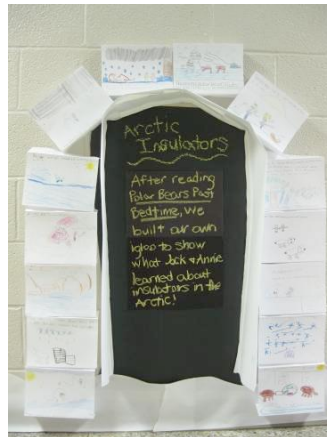 Arctic
Insulators
After reading
Polar Bears Past
Bedtime, we
built our own
igloo to show
what Jack & Annie
learned about
insulators in the
Arctic!